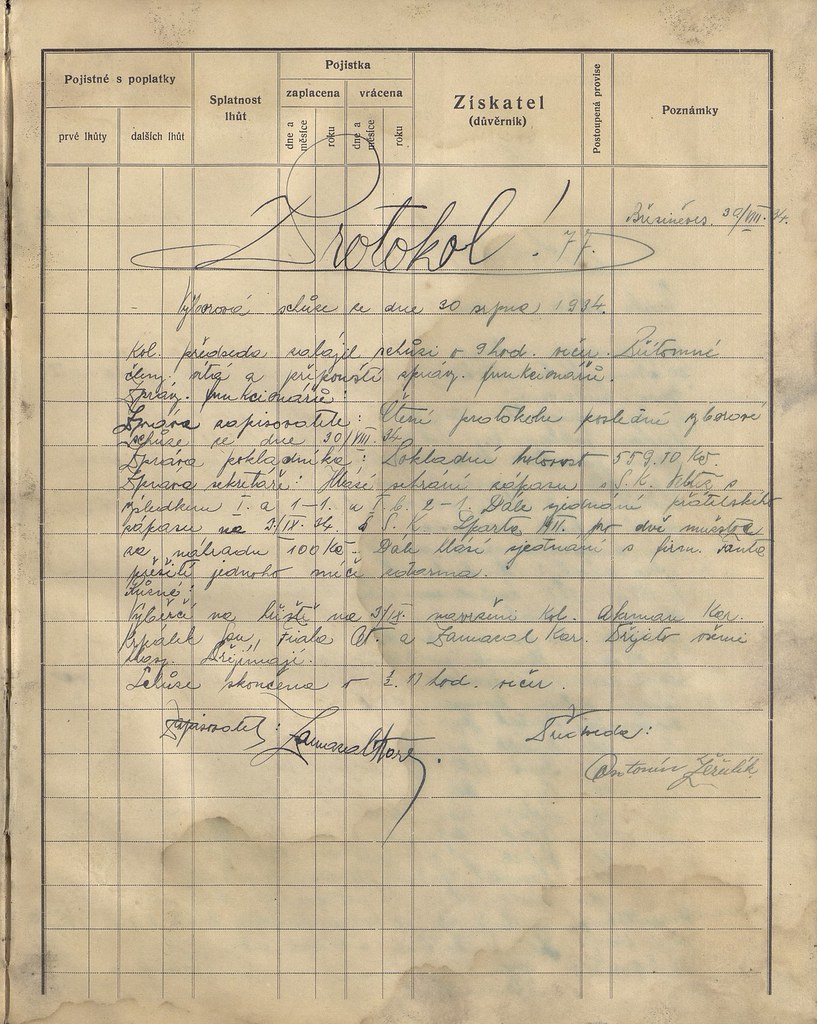 Pojistné s poplatky
prvé lhůty
dalších lhůt
Splatnost lhůt
Pojistka
zaplacena
vrácena
dne a měsíce
roku
dne a měsíce
roku
Získatel
(důvěrník)
Postoupená provise
Poznámky
30/VIII. 34.
Protokol! 77.
- Výborová schůze ze dne 30 srpna 1934.
Kol. předseda zahájil schůzi v 9 hod. večer. Přítomné
členy vítá a připouští správy funkcionářů.
Správy funkcionářů:
Zpráva zapisovatele: Čtení protokolu poslední výborové
schůze ze dne 30/VIII. 34.
Zpráva pokladníka: Pokladní hotovost 559.10 Kč.
Zpráva sekretáře: Hlásí sehrání zápasu s S. K. s
výsledkem I. a 1-1. a I. b. 2-1. Dále sjednání přátelského
zápasu na 2/IX. 34. s S. K. Sparta VII. pro dvě mužstva
za náhradu 100 Kč. Dále hlásí sjednání s firm.
přešití jednoho míče zdarma.
Různé:
Výběrčí na hřiště na 2/IX. navrženi kol. Kar.
Jan, Fiala a Zamazal Kar. Přijato všemi
hlasy.
Schůze skončena v ½ 11 hod. večer.
Zapisovatel: Zamazal Kar.
Předseda:
Antonín